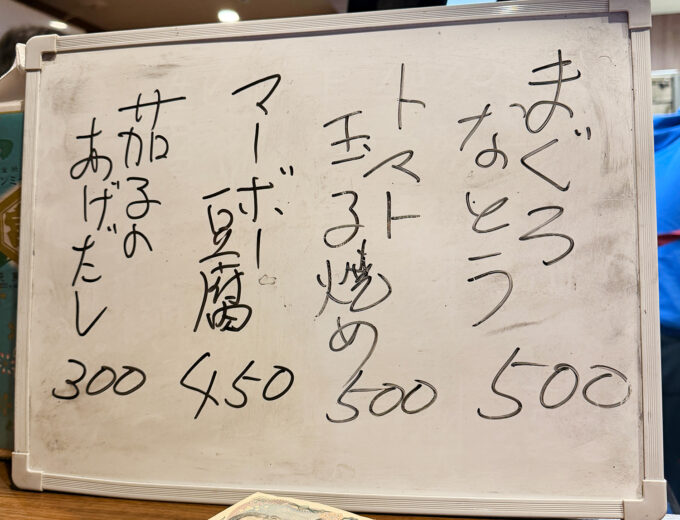 まぐろ
なっとう
500
トマト
玉子焼め
500
マーボー
豆腐
450
茄子の
あげだし
300